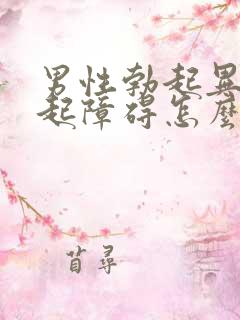 男性勃起異
起障碍怎麼
苜尋